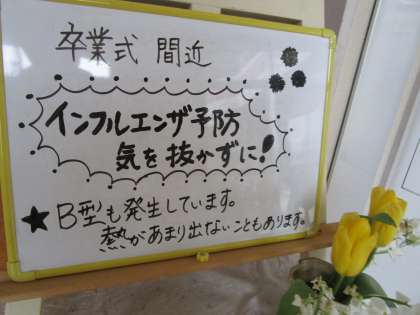 卒業式 間近
インフルエンザ予防
気を抜かずに!
★B型も発生しています。
熱があまり出ないこともあります。